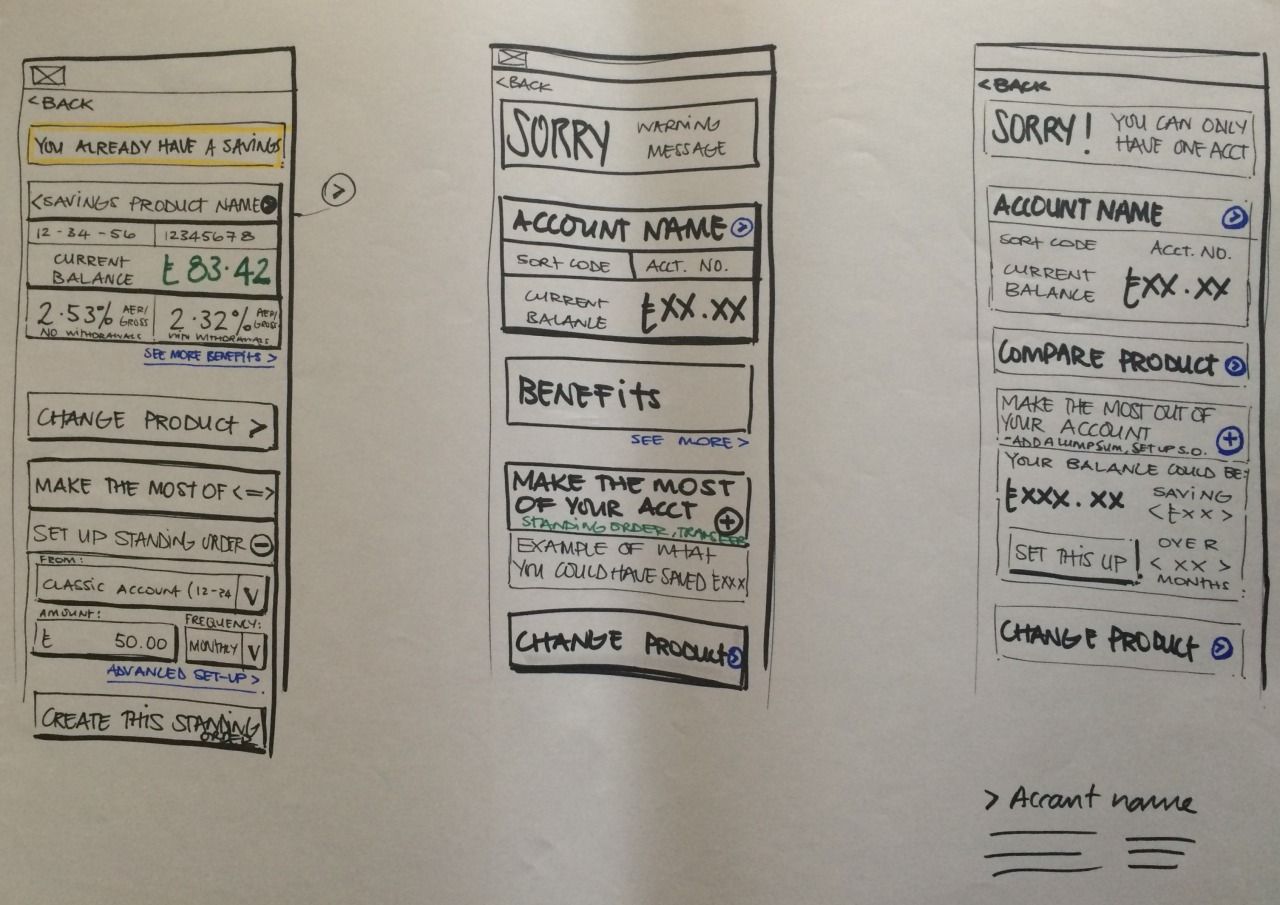 < BACK
YOU ALREADY HAVE A SAVINGS
<SAVINGS PRODUCT NAME >
12-34-56 12345678
CURRENT
BALANCE £83.42
2.53% AER/
GROSS
NO WITHDRAWALS
2.32% AER/
GROSS
WITH WITHDRAWALS
SEE MORE BENEFITS >
CHANGE PRODUCT >
MAKE THE MOST OF <=>
SET UP STANDING ORDER -
FROM:
CLASSIC ACCOUNT (12-34 V
AMOUNT: FREQUENCY:
£ 50.00 MONTHLY V
ADVANCED SET-UP >
CREATE THIS STANDING
ORDER
>
< BACK
SORRY WARNING
MESSAGE
ACCOUNT NAME >
SORT CODE ACCT. NO.
CURRENT
BALANCE £XX.XX
BENEFITS
SEE MORE >
MAKE THE MOST
OF YOUR ACCT +
STANDING ORDER, TRANSFER
EXAMPLE OF WHAT
YOU COULD HAVE SAVED £XXX
CHANGE PRODUCT >
< BACK
SORRY! YOU CAN ONLY
HAVE ONE ACCT
ACCOUNT NAME >
SORT CODE ACCT. NO.
CURRENT
BALANCE £XX.XX
COMPARE PRODUCT >
MAKE THE MOST OUT OF
YOUR ACCOUNT +
-ADD A LUMPSUM, SET UP S.O.
YOUR BALANCE COULD BE:
£XXX.XX SAVING
<£XX>
OVER
< XX >
MONTHS
SET THIS UP
CHANGE PRODUCT >
> Account name